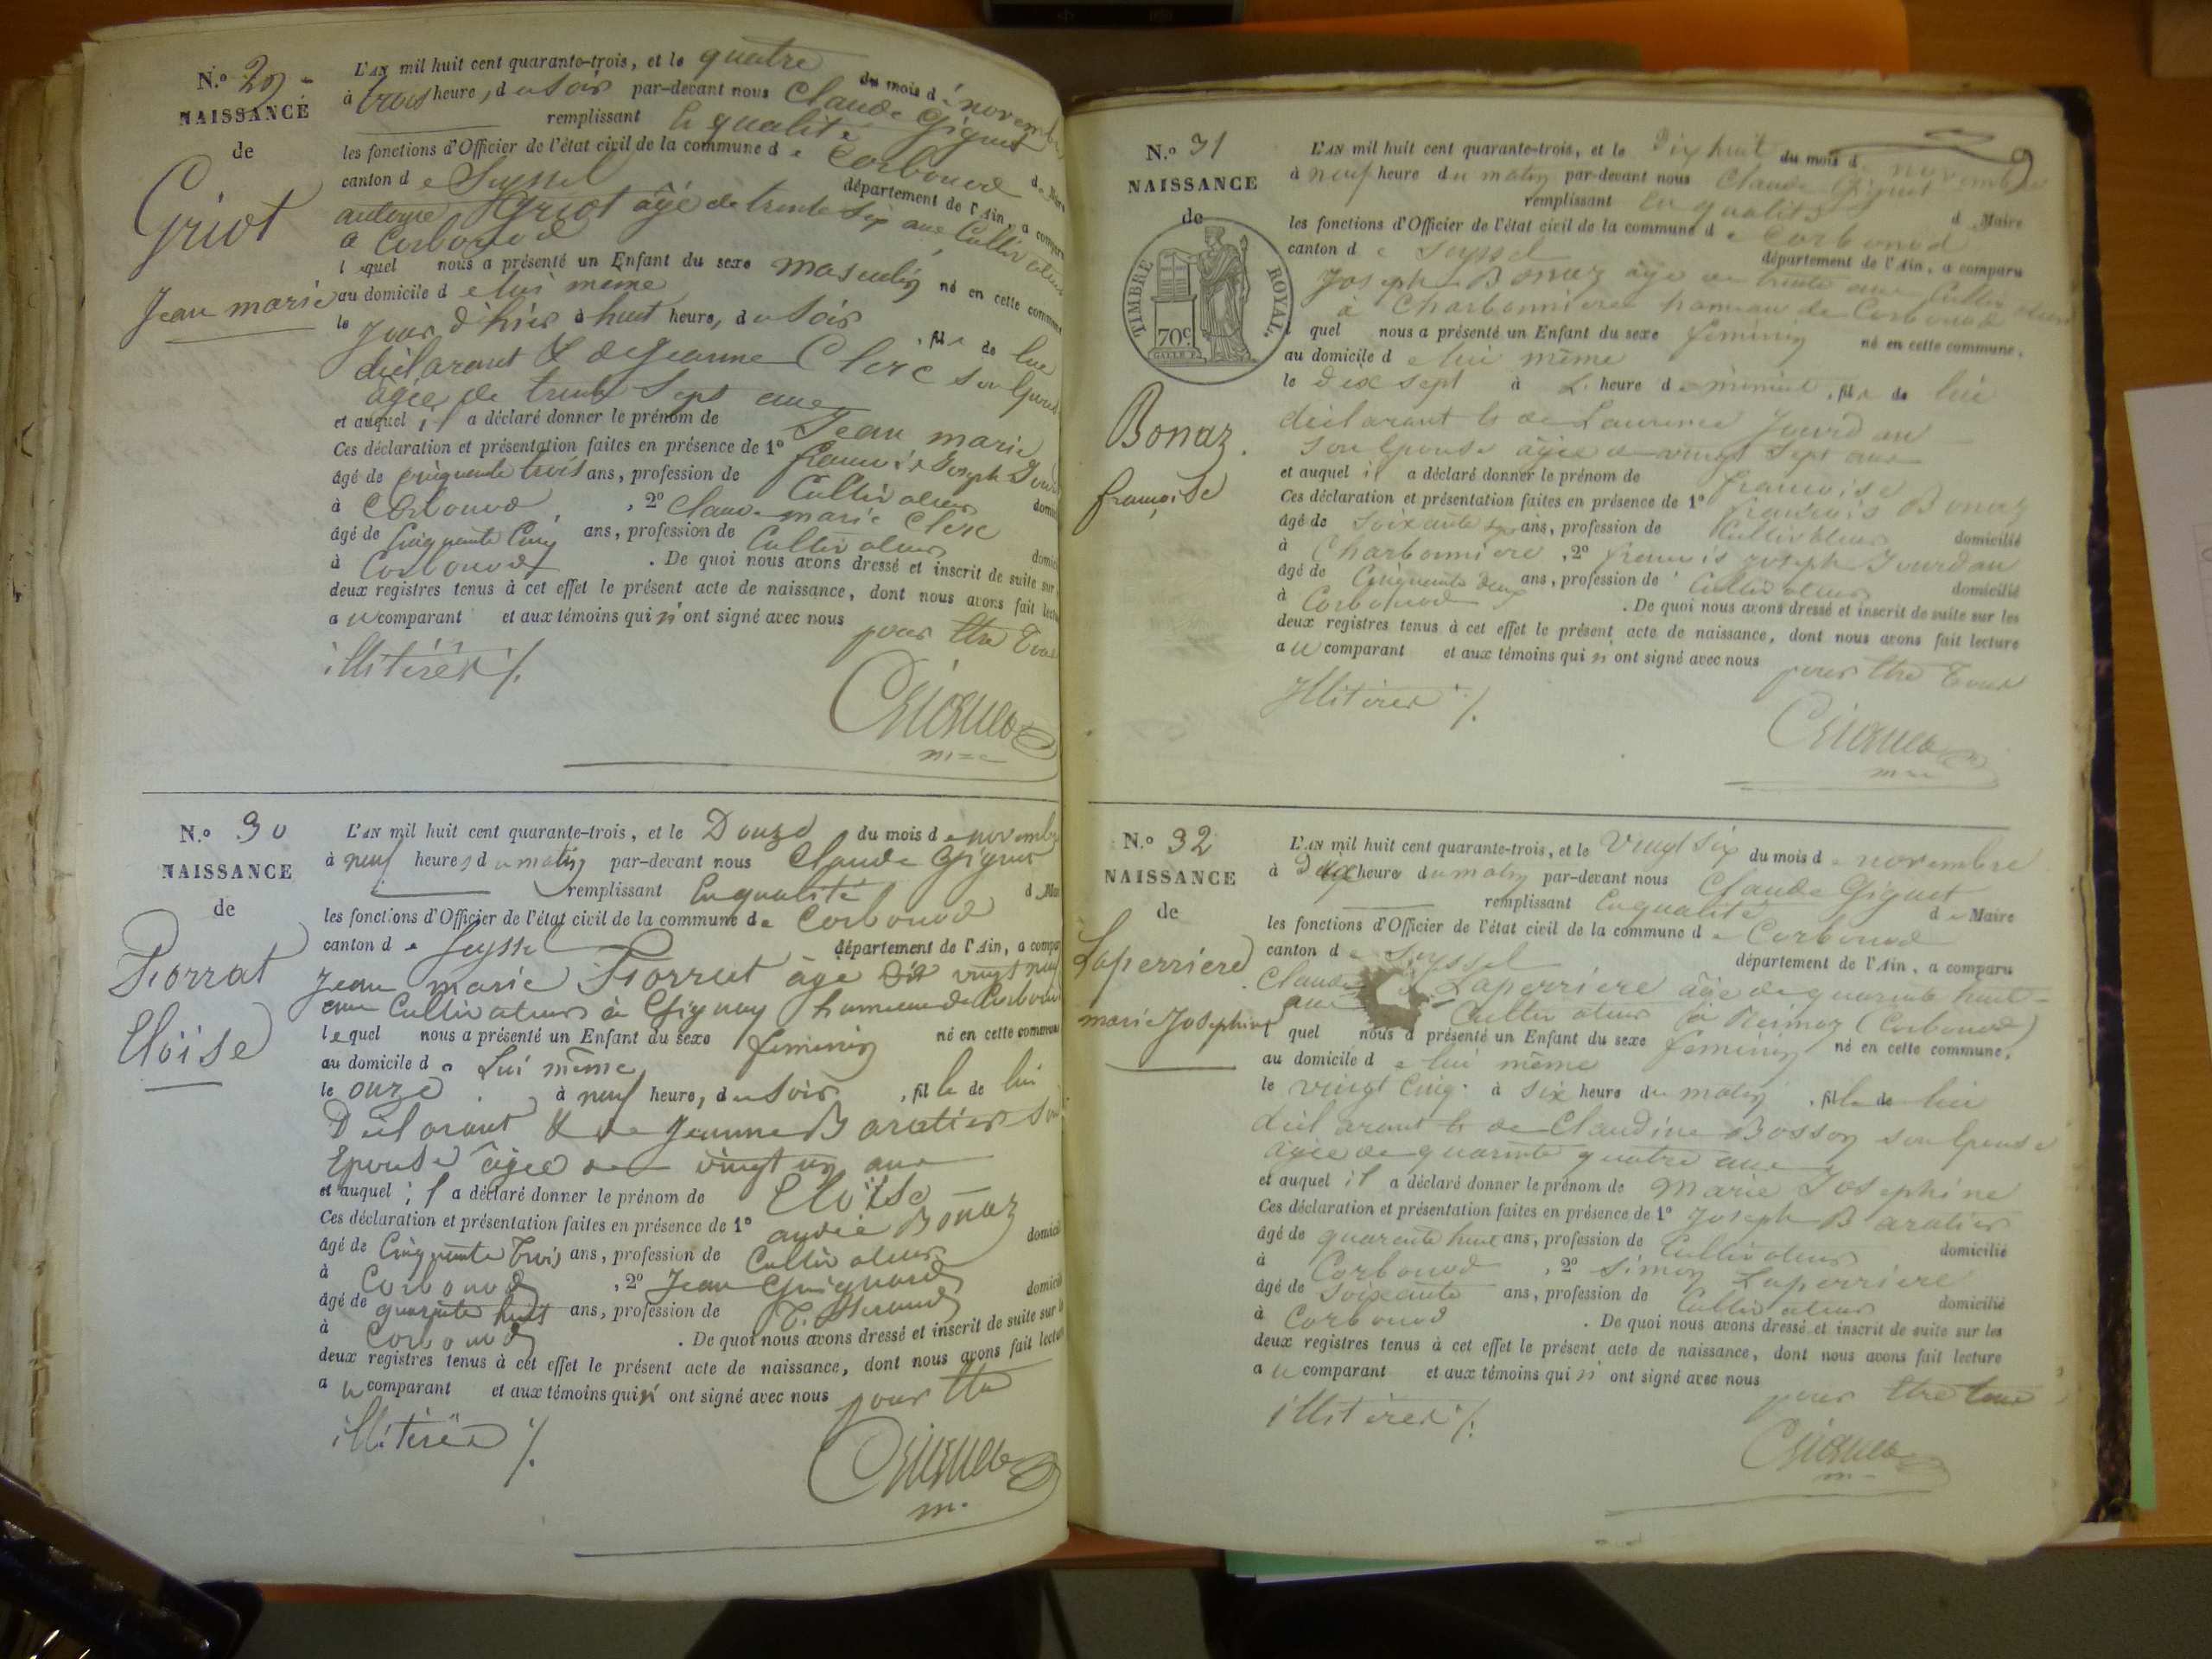 N.º 29
NAISSANCE
de
Griot
Jean marie
L'AN mil huit cent quarante-trois, et le quatre du mois de novembre
à trois heure, du soir par-devant nous Claude Giguet
remplissant en qualité de Maire
les fonctions d'Officier de l'état civil de la commune de Corbonod
canton de Seyssel département de l'Ain, a comparu
antoine Griot âgé de trente six ans Cultivateur
à Corbonod
lequel nous a présenté un Enfant du sexe masculin né en cette commune
au domicile de lui même
le jour d'hier à huit heure, du soir fils de lui
déclarant & de jeanne Clerc son Epouse
âgée de trente sept ans
et auquel il a déclaré donner le prénom de Jean marie
Ces déclaration et présentation faites en présence de 1º francois Joseph
âgé de cinquante trois ans, profession de Cultivateur
à Corbonod, 2º Claude marie Clerc
âgé de cinquante cinq ans, profession de Cultivateur
à Corbonod. De quoi nous avons dressé et inscrit de suite sur
deux registres tenus à cet effet le présent acte de naissance, dont nous avons fait lecture
au comparant et aux témoins qui n'ont signé avec nous pour être Tous
illitérés ./.
Giguet
N.º 30
NAISSANCE
de
Porrat
Eloïse
L'AN mil huit cent quarante-trois, et le Douze du mois de novembre
à neuf heures du matin par-devant nous Claude Giguet
remplissant En qualité de Maire
les fonctions d'Officier de l'état civil de la commune de Corbonod
canton de Seyssel département de l'Ain, a comparu
Jean marie Porrat âgé de vingt neuf
ans Cultivateur à Gignay hameau de Corbonod
lequel nous a présenté un Enfant du sexe feminin né en cette commune
au domicile de Lui même
le onze à neuf heure, du soir, fille de lui
Déclarant & de Jeanne Baratier son
Epouse âgée de vingt un ans
et auquel il a déclaré donner le prénom de Eloïse
Ces déclaration et présentation faites en présence de 1º andré Bonaz
âgé de Cinquante trois ans, profession de Cultivateur domicilié
à Corbonod, 2º Jean Guignard
âgé de quarante huit ans, profession de domicilié
à Corbonod. De quoi nous avons dressé et inscrit de suite sur
deux registres tenus à cet effet le présent acte de naissance, dont nous avons fait lecture
au comparant et aux témoins qui n'ont signé avec nous pour être
illitérés ./.
Giguet
m.
N.º 31
NAISSANCE
de
TIMBRE ROYAL.
70c.
Bonaz
françoise
L'AN mil huit cent quarante-trois, et le Dix huit du mois de novembre
à neuf heure du matin par-devant nous Claude Giguet
remplissant en qualité de Maire
les fonctions d'Officier de l'état civil de la commune de Corbonod
canton de Seyssel département de l'Ain, a comparu
Joseph Bonaz âgé de trente ans Cultivateur
à Charbonniere hameau de Corbonod
lequel nous a présenté un Enfant du sexe feminin né en cette commune.
au domicile de lui même
le dix sept à heure de minuit, fille de lui
déclarant & de Laurence Jourdan
son Epouse âgée de vingt sept ans
et auquel il a déclaré donner le prénom de francoise
Ces déclaration et présentation faites en présence de 1º francois Bonaz
âgé de soixante ans, profession de Cultivateur domicilié
à Charbonniere, 2º francois joseph Jourdan
âgé de Cinquante deux ans, profession de Cultivateur domicilié
à Corbonod. De quoi nous avons dressé et inscrit de suite sur les
deux registres tenus à cet effet le présent acte de naissance, dont nous avons fait lecture
au comparant et aux témoins qui n'ont signé avec nous pour être Tous
Illitérés ./.
Giguet
N.º 32
NAISSANCE
de
Laperriere
marie Josephine
L'AN mil huit cent quarante-trois, et le vingt six du mois de novembre
à Dix heure du matin par-devant nous Claude Giguet
remplissant En qualité de Maire
les fonctions d'Officier de l'état civil de la commune de Corbonod
canton de Seyssel département de l'Ain, a comparu
Claude Laperriere âgé de quarante huit
ans Cultivateur à Reimoz (Corbonod)
lequel nous a présenté un Enfant du sexe feminin né en cette commune.
au domicile de lui même
le vingt Cinq à six heure du matin, fille de lui
déclarant & de Claudine Bosson son Epouse
âgée de quarante quatre ans
et auquel il a déclaré donner le prénom de marie Josephine
Ces déclaration et présentation faites en présence de 1º Joseph Baratier
âgé de quarante huit ans, profession de Cultivateur domicilié
à Corbonod, 2º Simon Laperriere
âgé de soixante ans, profession de Cultivateur domicilié
à Corbonod. De quoi nous avons dressé et inscrit de suite sur les
deux registres tenus à cet effet le présent acte de naissance, dont nous avons fait lecture
au comparant et aux témoins qui n'ont signé avec nous pour être Tous
illitérés ./.
Giguet